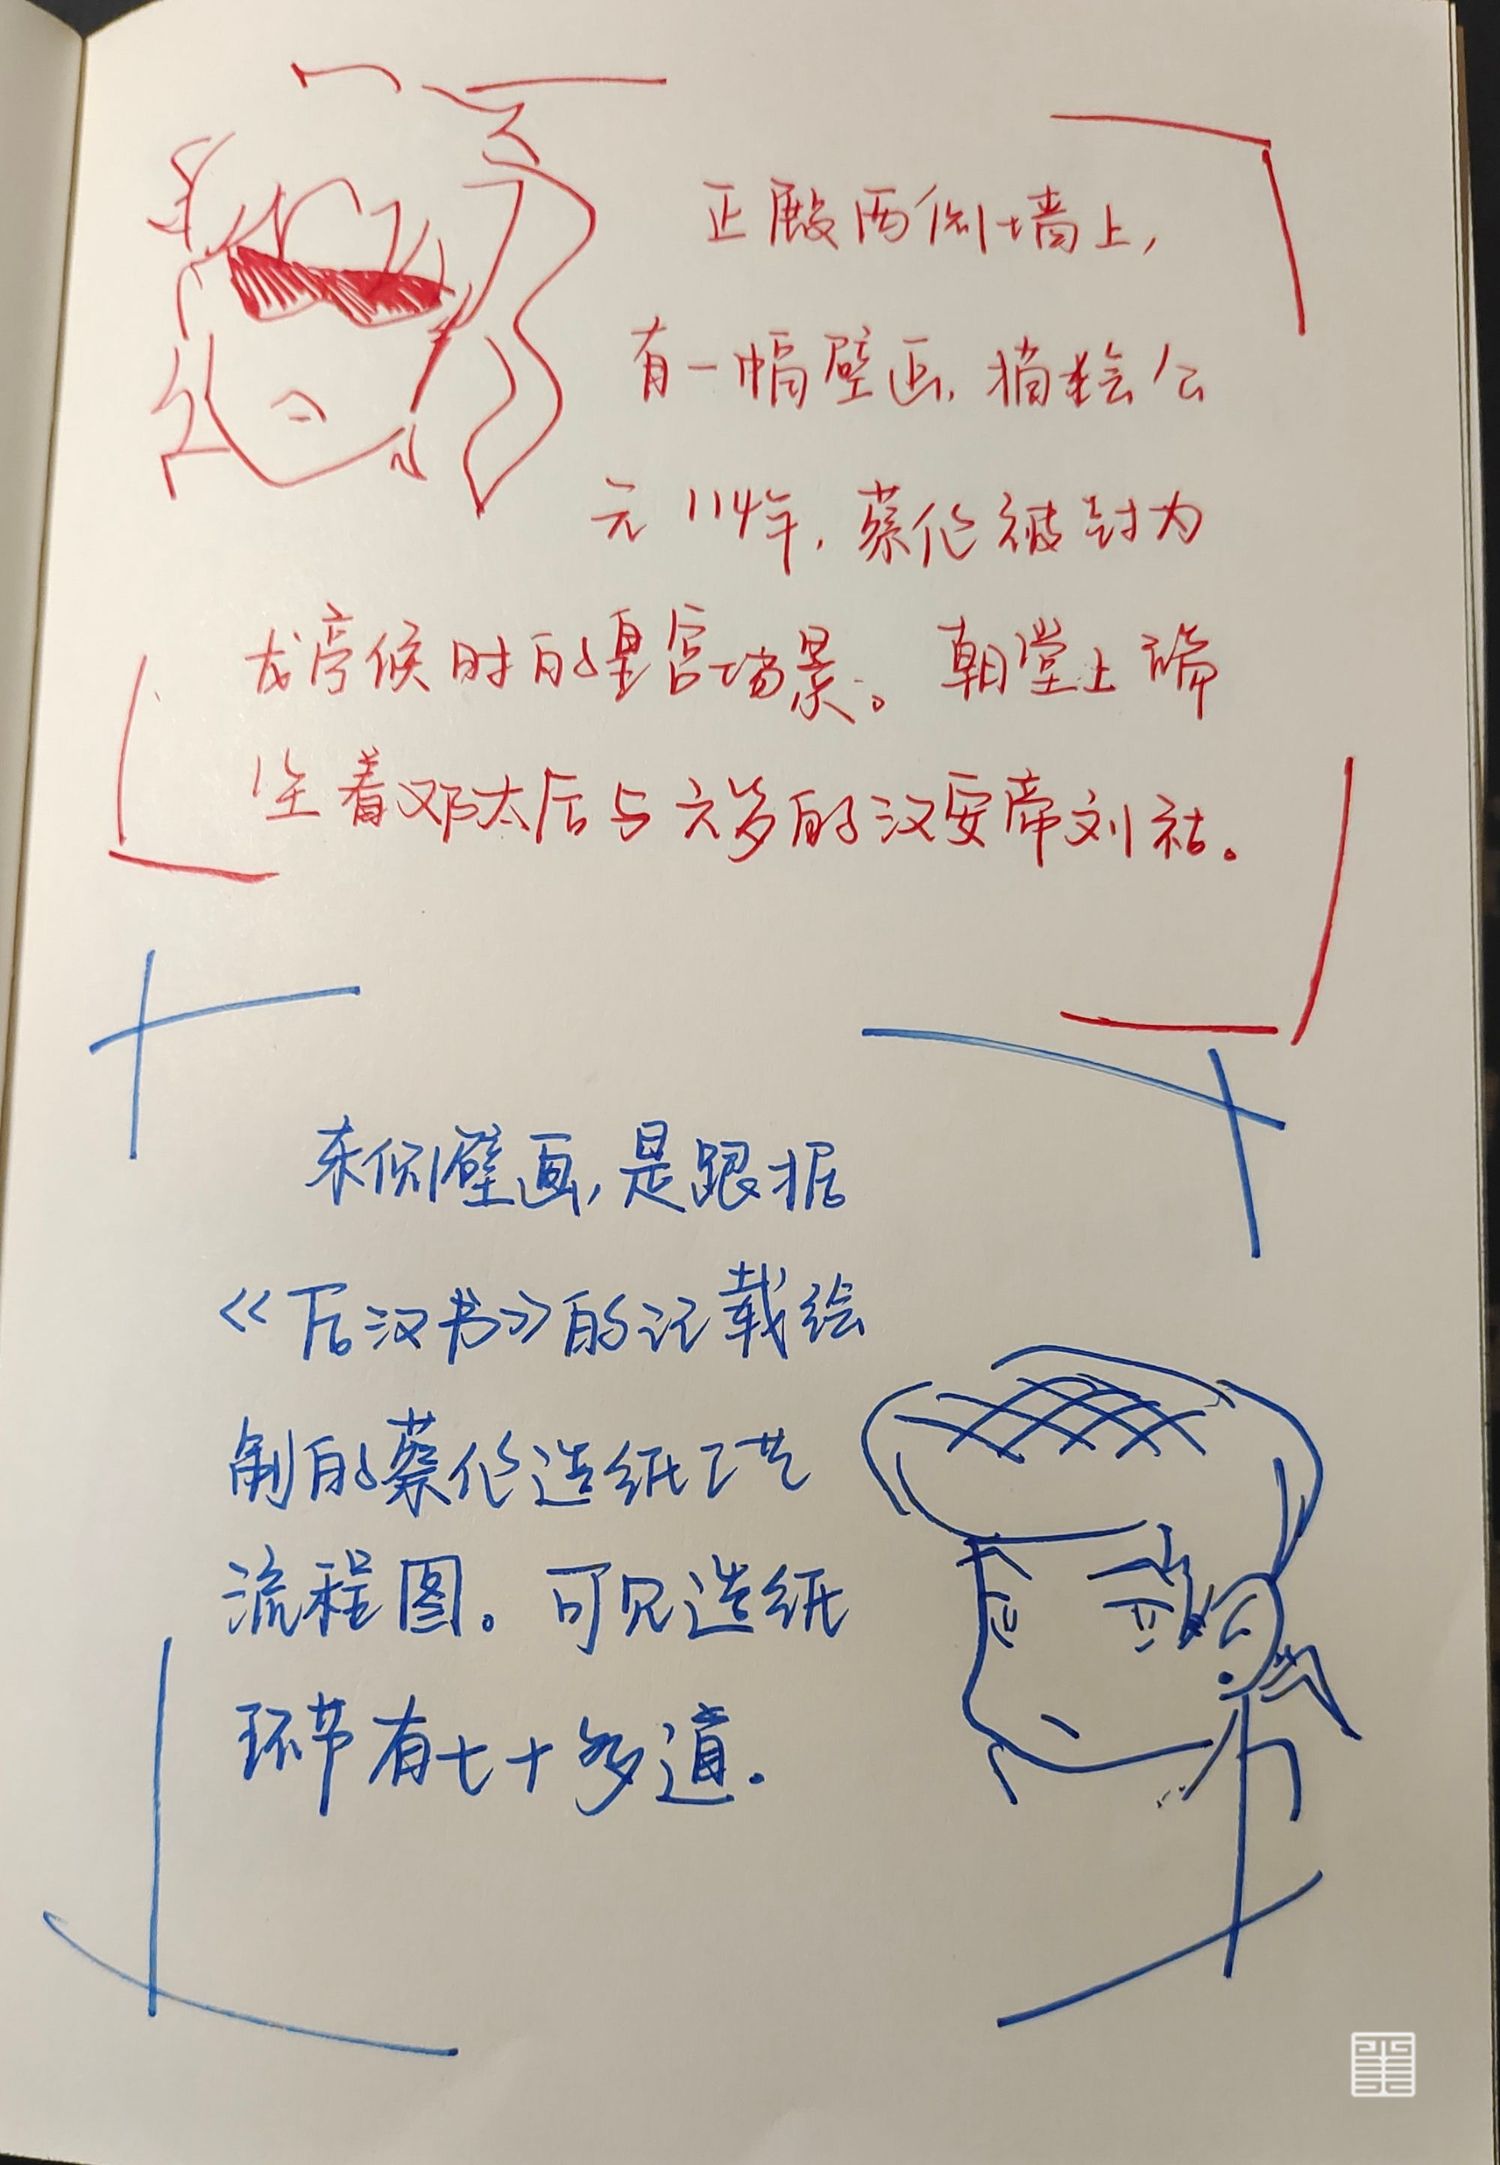 正殿两侧墙上,
有一幅壁画,描绘公
元114年,蔡伦被封为
龙亭候时的皇宫场景。朝堂上端
坐着邓太后与六岁的汉安帝刘祜。
东侧壁画,是跟据
《后汉书》的记载绘
制的蔡伦造纸工艺
流程图。可见造纸
环节有七十多道.